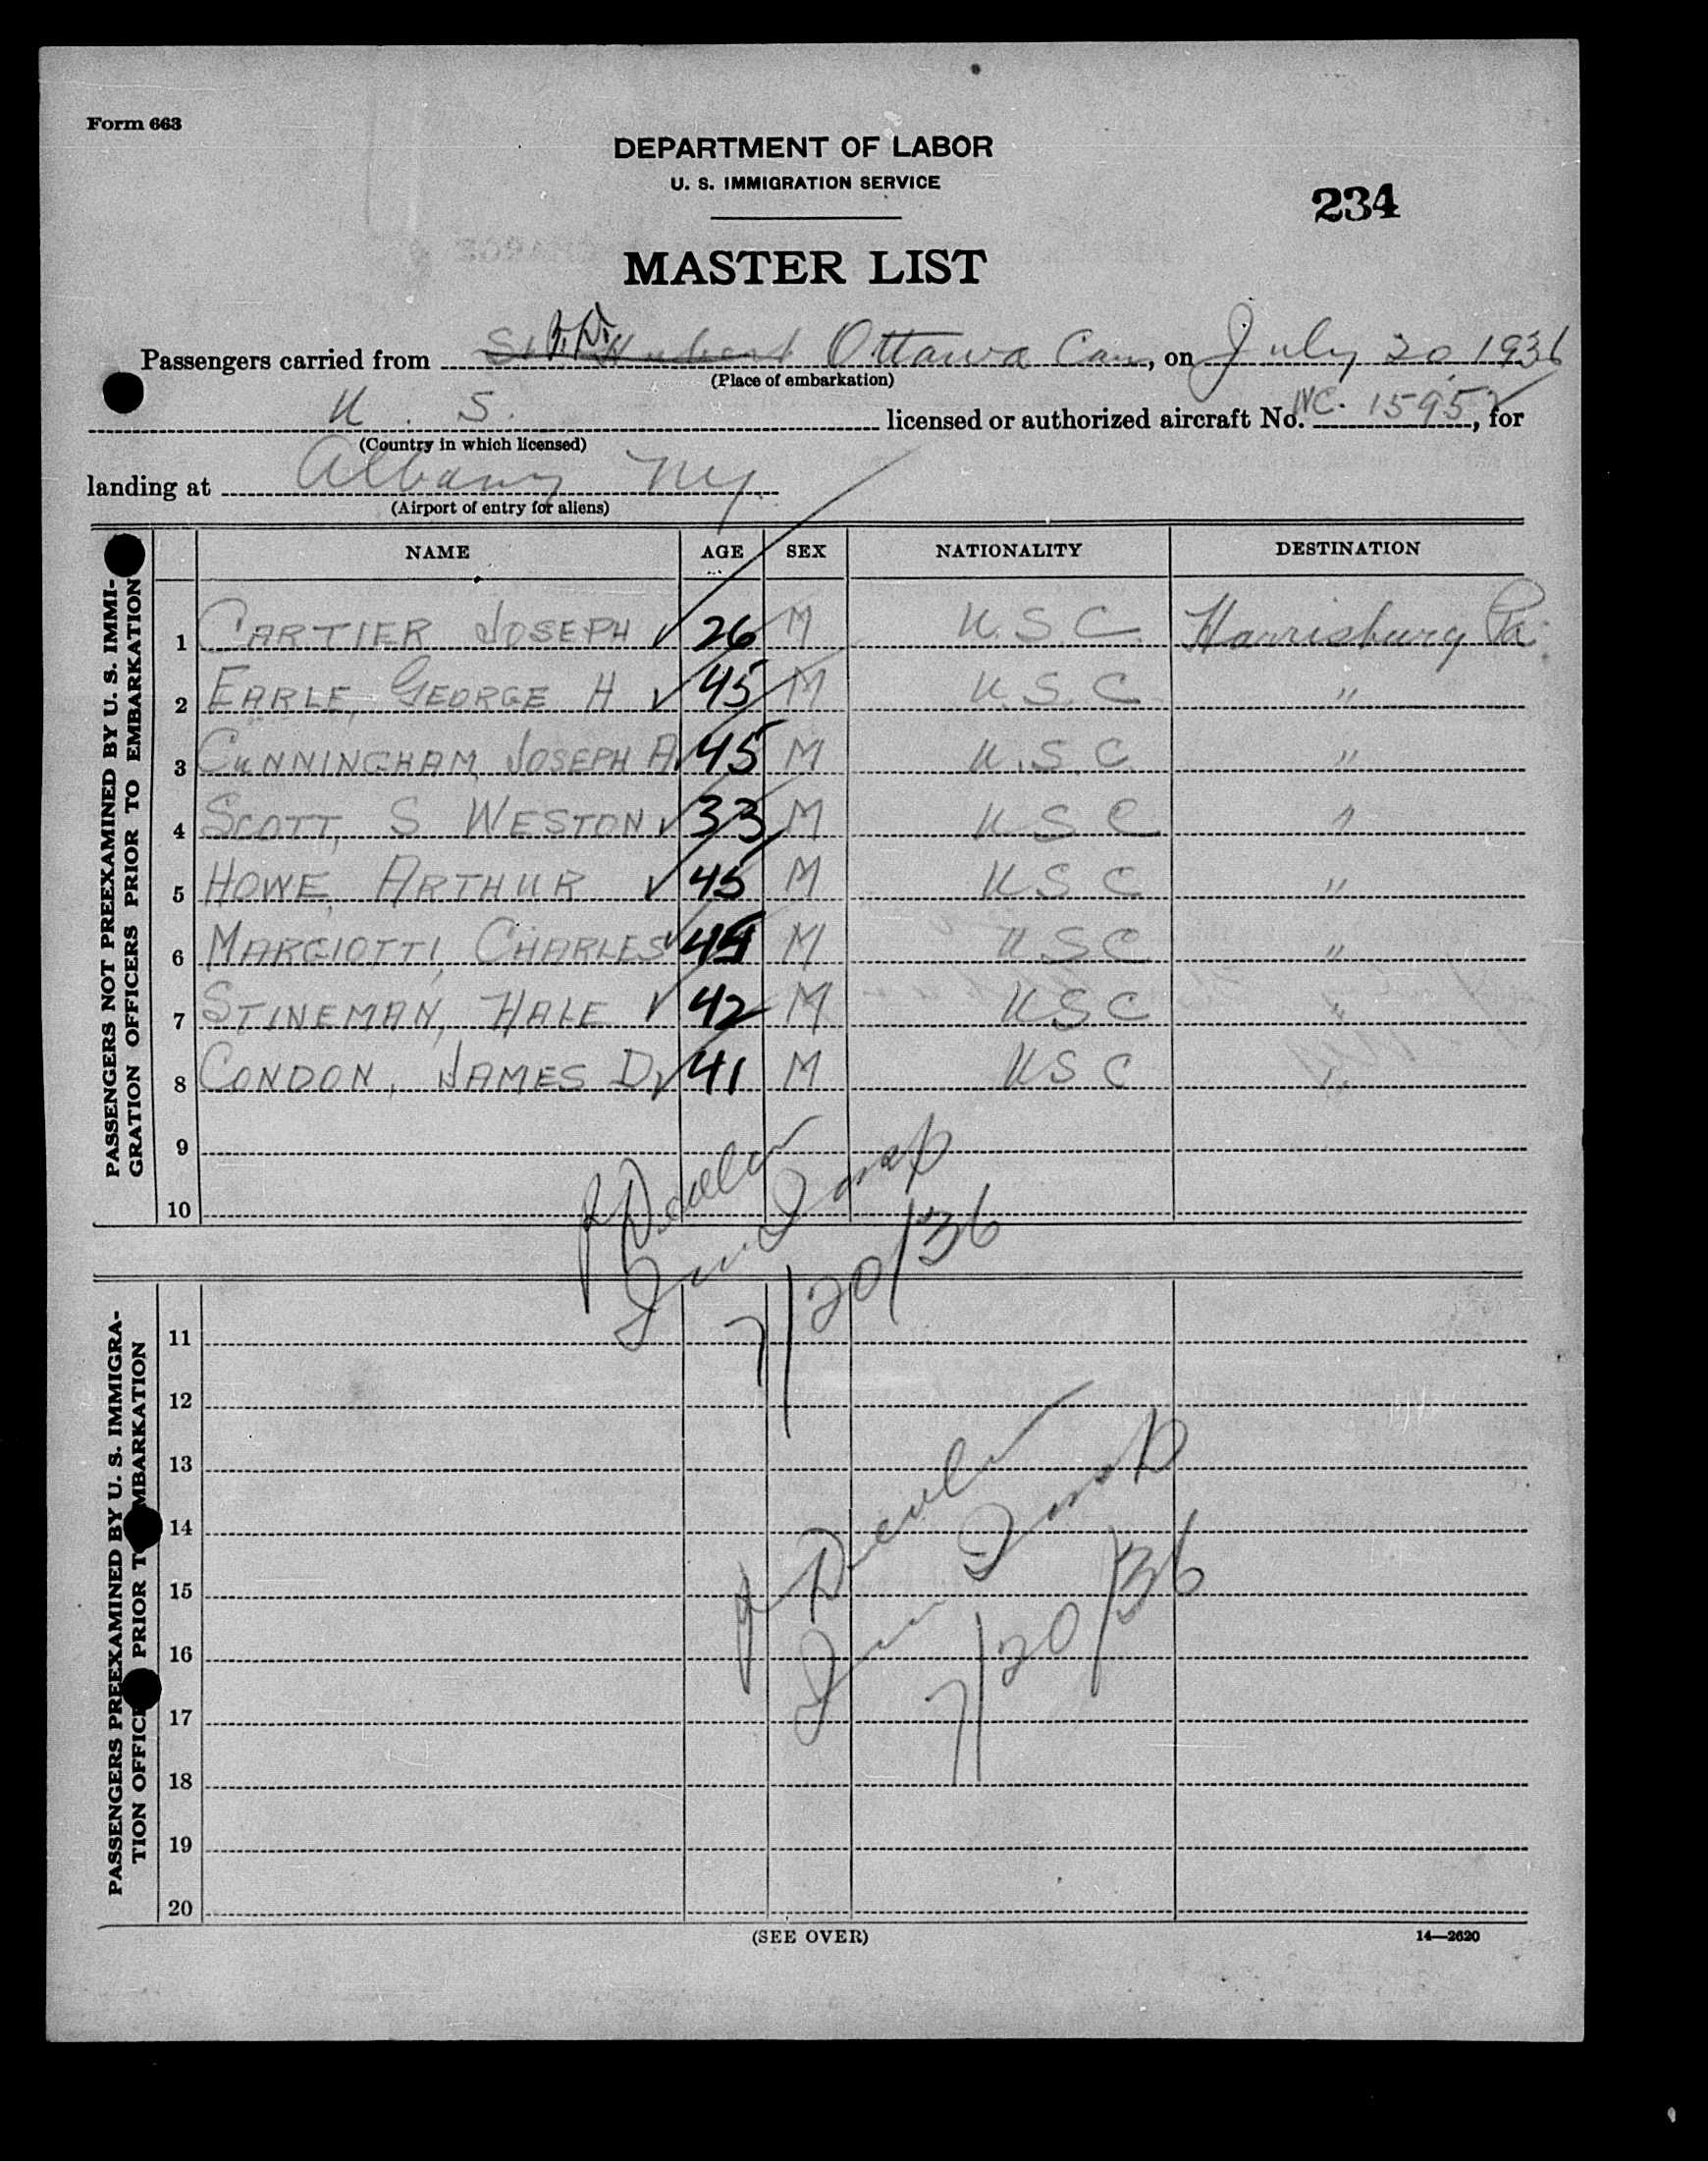 Form 663
DEPARTMENT OF LABOR
U. S. IMMIGRATION SERVICE
234
MASTER LIST
Passengers carried from St. Hubert J.D. Ottawa Can, on July 20, 1936
(Place of embarkation)
U. S. licensed or authorized aircraft No. NC. 1595, for
(Country in which licensed)
landing at Albany NY.
(Airport of entry for aliens)
PASSENGERS NOT PREEXAMINED BY U. S. IMMI-
GRATION OFFICERS PRIOR TO EMBARKATION
NAME AGE SEX NATIONALITY DESTINATION
1 CARTIER JOSEPH ✓ 26 M U.S.C. Harrisburg Pa.
2 EARLE, GEORGE H ✓ 45 M U.S.C. "
3 CUNNINGHAM, JOSEPH A. ✓ 45 M U.S.C. "
4 SCOTT, S WESTON ✓ 33 M U S C "
5 HOWE, ARTHUR ✓ 45 M U S C "
6 MARGIOTTI, CHARLES ✓ 44 M U S C "
7 STINEMAN, HALE ✓ 42 M U S C "
8 CONDON, JAMES D ✓ 41 M U S C "
9
10
J Devlin
Imm Insp
7/20/36
PASSENGERS PREEXAMINED BY U. S. IMMIGRA-
TION OFFICE PRIOR T MBARKATION
11
12
13
14
15
16
17
18
19
20
J Devlin
Imm Insp
7/20/36
(SEE OVER)
14—2620